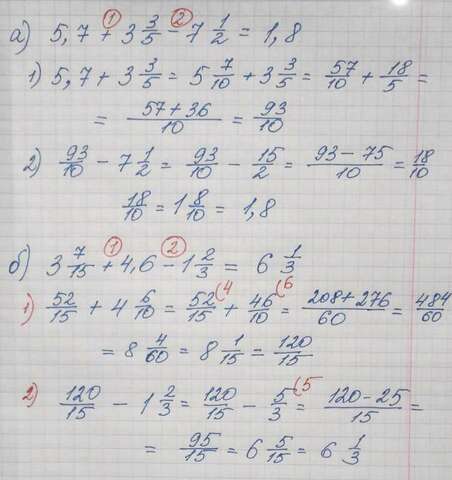 а) 5,7 + 3 3/5 - 7 1/2 = 1,8
1) 5,7 + 3 3/5 = 5 7/10 + 3 3/5 = 57/10 + 18/5 =
= (57+36)/10 = 93/10
2) 93/10 - 7 1/2 = 93/10 - 15/2 = (93-75)/10 = 18/10
18/10 = 1 8/10 = 1,8
б) 3 7/15 + 4,6 - 1 2/3 = 6 1/3
1) 52/15 + 4 6/10 = 52/15 (4 + 46/10 (6 = (208+276)/60 = 484/60
= 8 4/60 = 8 1/15 = 120/15
2) 120/15 - 1 2/3 = 120/15 - 5/3 (5 = (120-25)/15 =
= 95/15 = 6 5/15 = 6 1/3